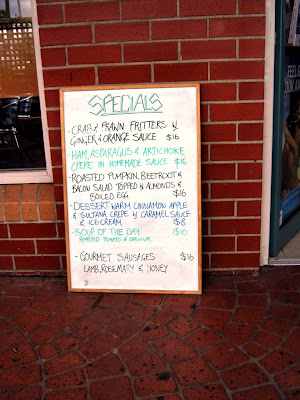 SPECIALS
- CRAB & PRAWN FRITTERS W
GINGER & ORANGE SAUCE $16
- HAM, ASPARAGUS & ARTICHOKE
CREPE IN HOMEMADE SAUCE $16
- ROASTED PUMPKIN, BEETROOT &
BACON SALAD TOPPED W ALMONDS &
BOILED EGG $16
- DESSERT: WARM CINNAMON APPLE
& SULTANA CREPE W CARAMEL SAUCE
& ICE-CREAM $8
- SOUP OF THE DAY $10
ROASTED TOMATO &
- GOURMET SAUSAGES $16
LAMB, ROSEMARY & HONEY